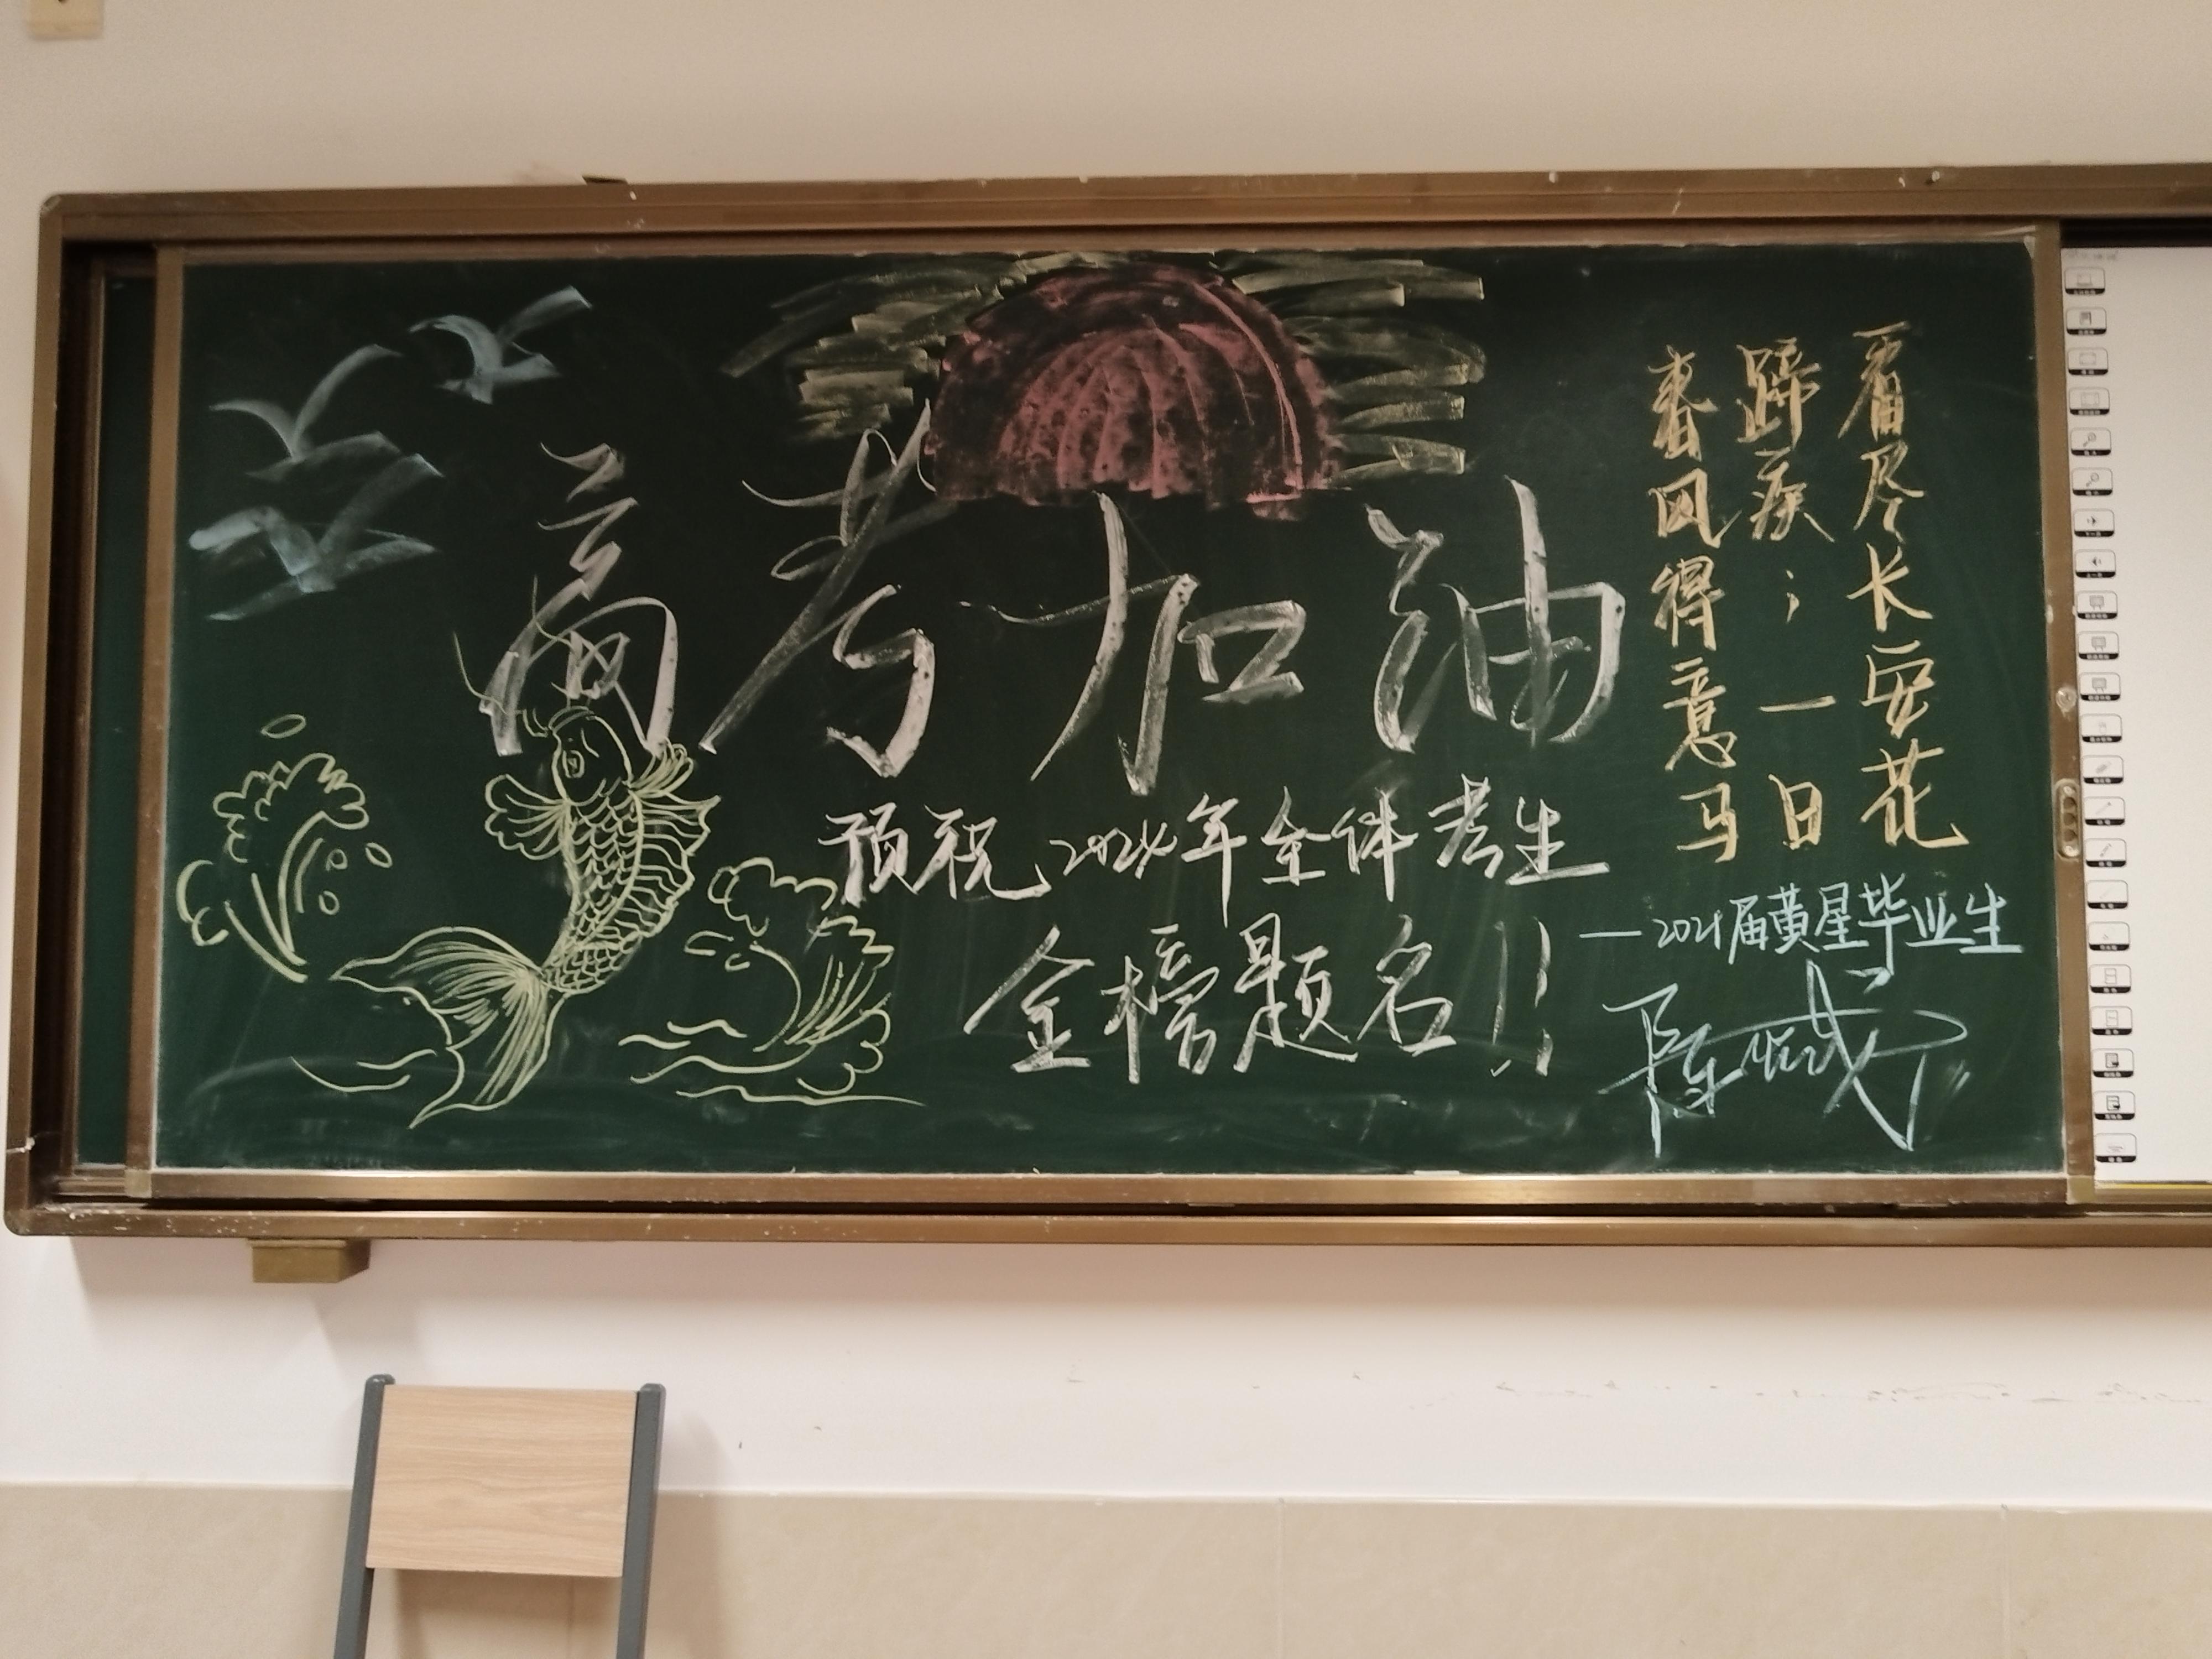 高考加油
预祝2024年全体考生
金榜题名!!
春风得意马
蹄疾;一日
看尽长安花
—2021届黄星毕业生